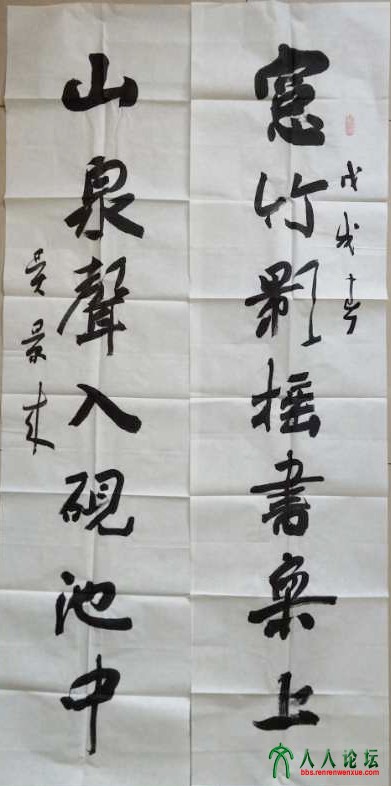 窻竹影摇書案上
戊戌
山泉聲入硯池中
吴景来
人人论坛
bbs.renrenwenxue.com